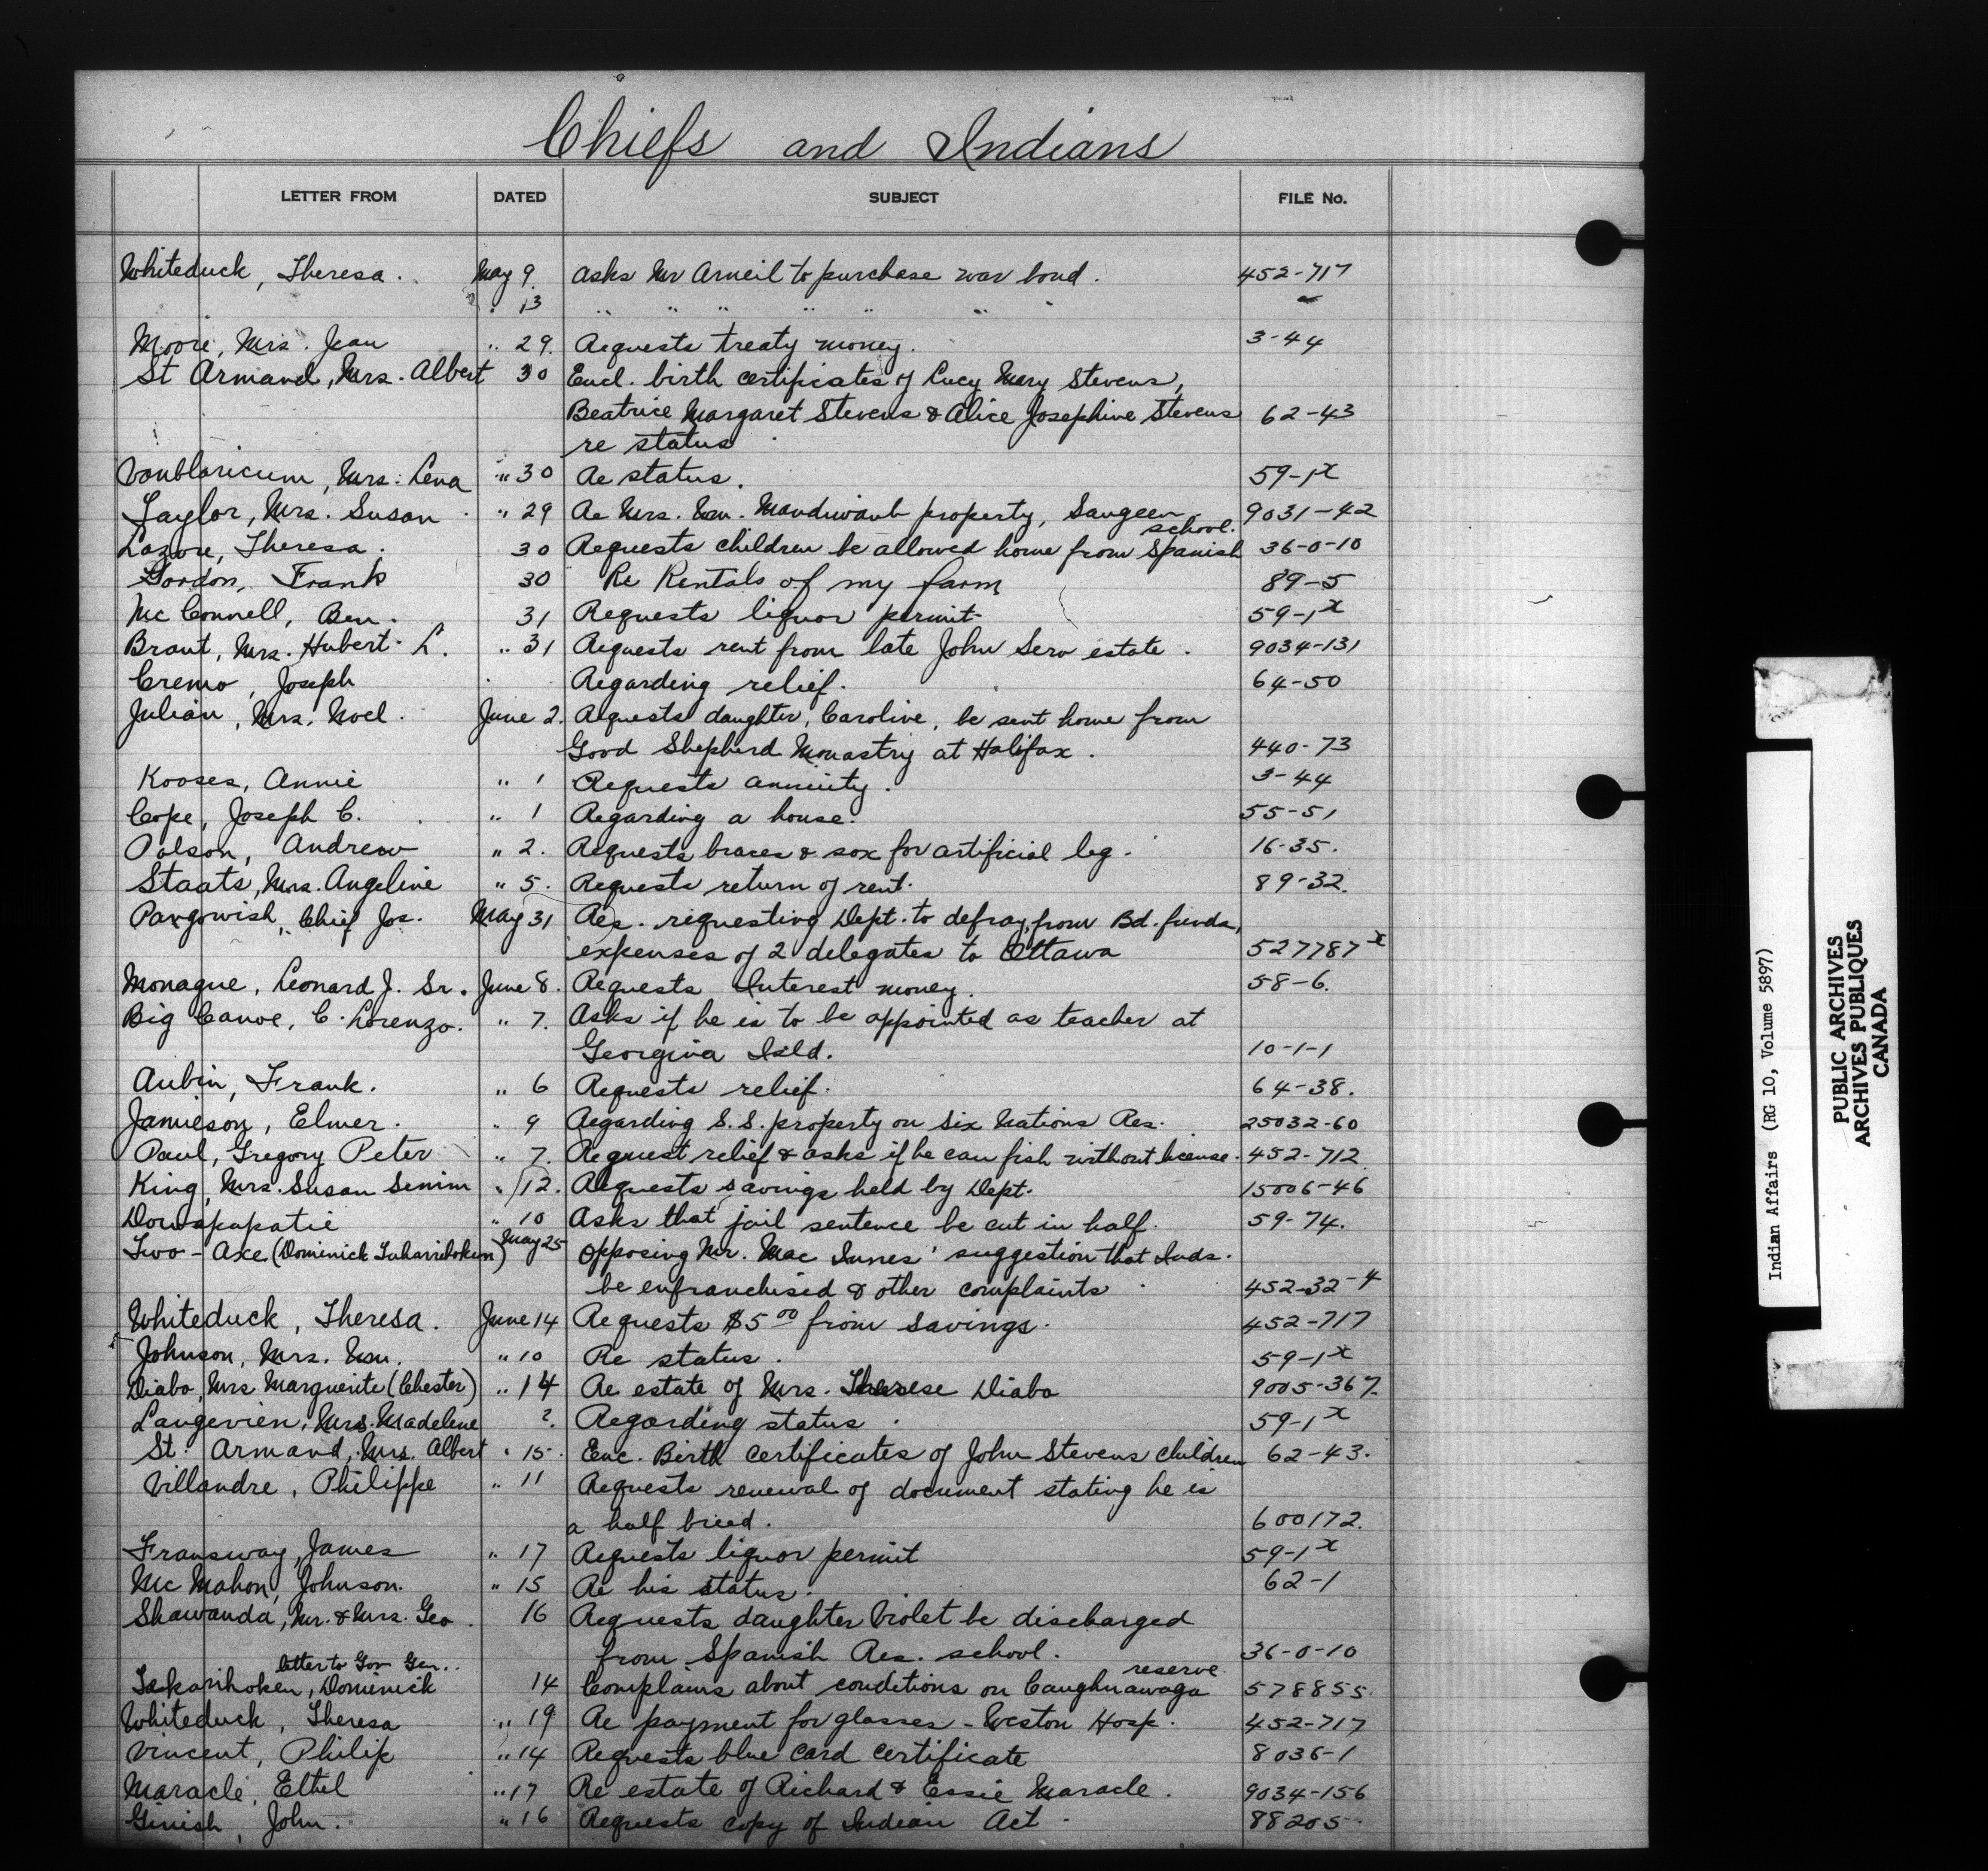 Chiefs and Indians
LETTER FROM DATED SUBJECT FILE No.
Whiteduck, Theresa. May 9. Asks Mr Arneil to purchase war bond. 452-717
" 13 " " " " " " "
Moore, Mrs. Jean " 29. Requests treaty money. 3-44
St Armand, Mrs. Albert 30 Encl. birth certificates of Lucy Mary Stevens,
Beatrice Margaret Stevens & Alice Josephine Stevens 62-43
re status
Vanblaricum, Mrs. Lena " 30 Re status. 59-1x
Taylor, Mrs. Susan " 29 Re Mrs. Wm. Mandiwaub property, Saugeen 9031-42
school.
Lazore, Theresa. 30 Requests children be allowed home from Spanish 36-0-10
Gordon, Frank 30 Re Rentals of my farm 89-5
Mc Connell, Ben. 31 Requests liquor permit 59-1x
Brant, Mrs. Hubert L. " 31 Requests rent from late John Sero estate. 9034-131
Cremo, Joseph Regarding relief. 64-50
Julian, Mrs. Noel. June 2. Requests daughter, Caroline, be sent home from
Good Shepherd Monastry at Halifax. 440-73
Kooses, Annie " 1 Requests annuity. 3-44
Cope, Joseph C. " 1 Regarding a house. 55-51
Polson, Andrew " 2. Requests braces & sox for artificial leg. 16-35.
Staats, Mrs. Angeline " 5. Requests return of rent. 89-32.
Pangowish, Chief Jos. May 31 Res. requesting Dept. to defray, from Bd. funds,
expenses of 2 delegates to Ottawa 527787x
Monague, Leonard J. Sr. June 8. Requests Interest money. 58-6.
Big Canoe, C. Lorenzo. " 7. Asks if he is to be appointed as teacher at
Georgina Isld. 10-1-1
Aubin, Frank. " 6 Requests relief. 64-38.
Jamieson, Elmer. " 9 Regarding S.S. property on Six Nations Res. 25032-60
Paul, Gregory Peter " 7. Request relief & asks if he can fish without license. 452-712
King, Mrs. Susan Senim " 12. Requests savings held by Dept. 15006-46
Donspapatie " 10 Asks that jail sentence be cut in half. 59-74.
Two-Axe (Dominick Takarihoken) May 25 Opposing Mr. Mac Innes' suggestion that Inds.
be enfranchised & other complaints 452-32-4
Whiteduck, Theresa. June 14 Requests $5 00 from savings. 452-717
Johnson, Mrs. Wm. " 10 Re status. 59-1x
Diabo, Mrs Marguerite (Chester) " 14 Re estate of Mrs. Therese Diabo 9005-367.
Langevien, Mrs. Madeline 2. Regarding status. 59-1x
St. Armand, Mrs. Albert " 15. Enc. Birth certificates of John Stevens children 62-43.
Villandre, Philippe " 11 Requests renewal of document stating he is
a half breed. 600172.
Fransway, James " 17 Requests liquor permit 59-1x
Mc Mahon, Johnson. " 15 Re his status. 62-1
Shawanda, Mr. & Mrs. Geo. 16 Requests daughter Violet be discharged
from Spanish Res. school. 36-0-10
letter to Gov Gen.. reserve.
Takarihoken, Dominick 14 Complains about conditions on Caughnawaga 578855.
Whiteduck, Theresa " 19 Re payment for glasses - Weston Hosp. 452-717
Vincent, Philip " 14 Requests blue card certificate 8036-1
Maracle, Ethel " 17 Re estate of Richard & Essie Maracle. 9034-156
Ginish, John. " 16 Requests copy of Indian Act 88205.
Indian Affairs (RG 10, Volume 5897)
PUBLIC ARCHIVES
ARCHIVES PUBLIQUES
CANADA